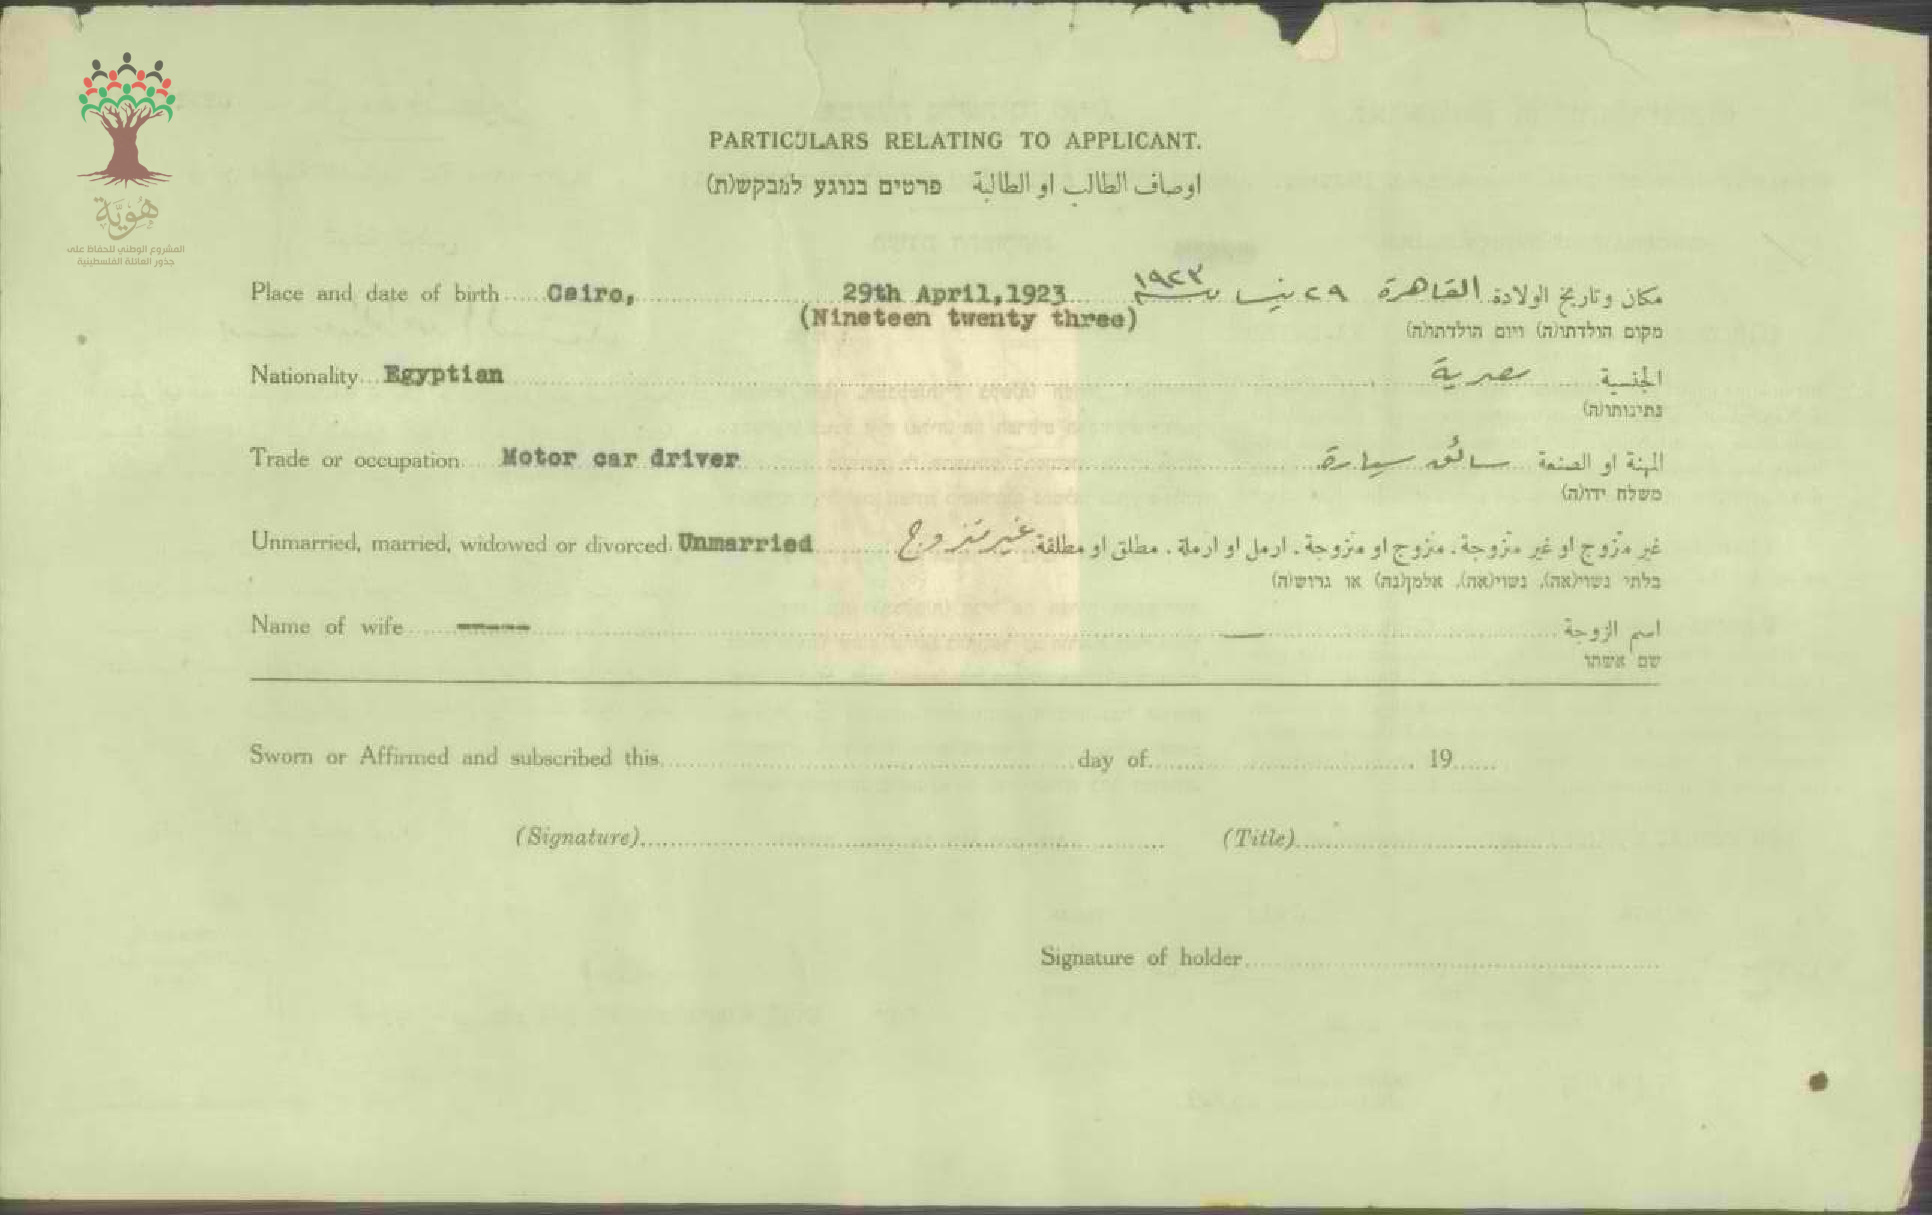 هُوِيَّة
المشروع الوطني للحفاظ على
جذور العائلة الفلسطينية
PARTICULARS RELATING TO APPLICANT.
اوصاف الطالب او الطالبة פרטים בנוגע למבקש(ת)
Place and date of birth Cairo, 29th April,1923 ١٩٢٣ مكان وتاريخ الولادة القاهرة ٢٩ نيسان سنة
(Nineteen twenty three) מקום הולדתו(ה) ויום הולדתו(ה)
Nationality Egyptian الجنسية مصرية
נתינותו(ה)
Trade or occupation Motor car driver المهنة او الصنعة سائق سيارة
משלח ידו(ה)
Unmarried, married, widowed or divorced Unmarried غير متزوج او غير متزوجة. متزوج او متزوجة. ارمل او ارملة. مطلق او مطلقة غير متزوج
בלתי נשוי(אה), נשוי(אה), אלמן(נה) או גרוש(ה)
Name of wife ----- اسم الزوجة —
שם אשתו
Sworn or Affirmed and subscribed this day of 19
(Signature) (Title)
Signature of holder